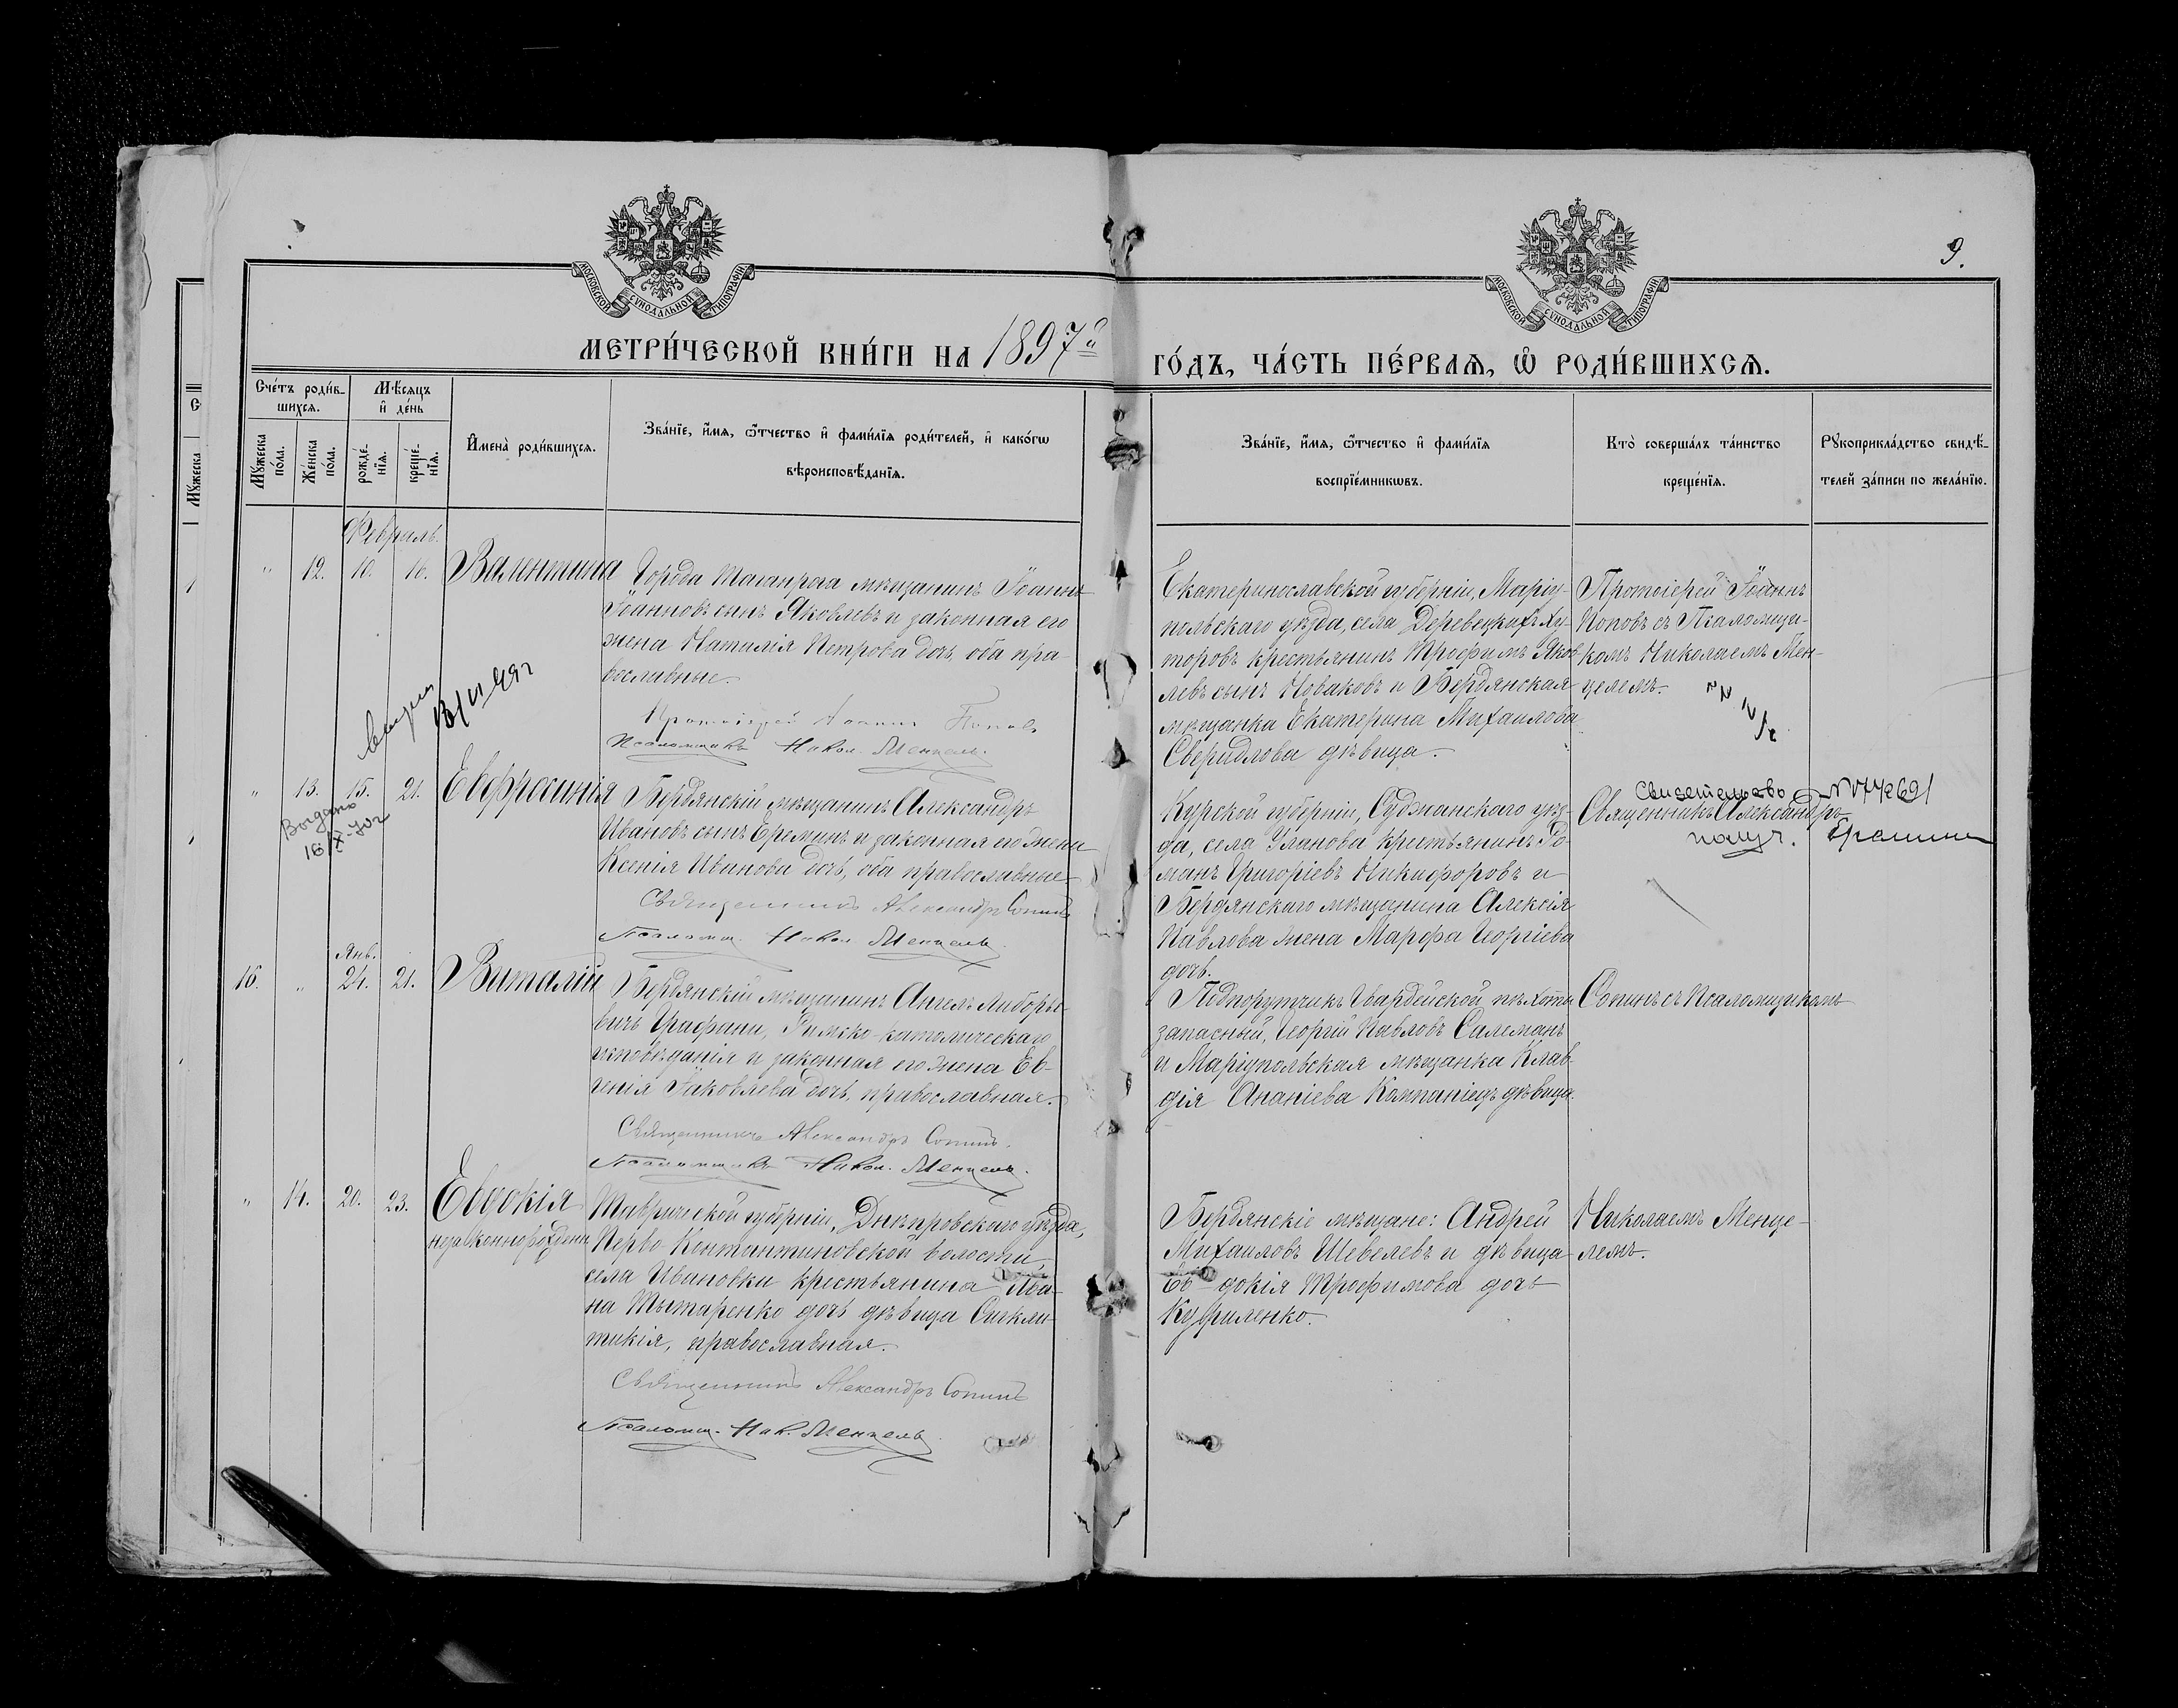 МОСКОВСКОЙ СѴНОДАЛЬНОЙ ТИПОГРАФІИ
МОСКОВСКОЙ СѴНОДАЛЬНОЙ ТИПОГРАФІИ
9.
МЕТРИ́ЧЕСКОЙ КНИ́ГИ НА 1897й
ГО́ДЪ, ЧА́СТЬ ПЕ́РВАѦ, Ѡ҆ РОДИ́ВШИХСѦ.
Сче́тъ роди́в-
шихсѧ.
Мѣ́сѧцъ
и҆ де́нь
Мꙋ́жеска по́ла.
Же́нска по́ла.
рожде́-
нїѧ.
креще́-
нїѧ.
И҆мена̀ роди́вшихсѧ.
Зва́нїе, и҆́мѧ, ѻ҆́тчество и҆ фами́лїѧ роди́телей, и҆ како́гѡ
вѣроисповѣ́данїѧ.
Зва́нїе, и҆́мѧ, ѻ҆́тчество и҆ фами́лїѧ
воспрїе́мникѡвъ.
Кто̀ соверша́лъ та́инство
креще́нїѧ.
Рꙋкоприкла́дство свидѣ́-
телей за́писи по жела́нїю.
Февраль.
" 12. 10. 16. Валентина
Города Таганрога мѣщанинъ Іоаннъ
Іоанновъ сынъ Яковлевъ и законная его
жена Наталія Петрова дочь, оба пра-
вославные.
Протоіерей Іоаннъ Поповъ
Псаломщикъ Никол. Менцель.
Екатеринославской губерніи, Маріу-
польскаго уѣзда, села Деревецкихъ ху-
торовъ крестьянинъ Трофимъ Яков-
левъ сынъ Новаковъ и Бердянская
мѣщанка Екатерина Михаилова
Свердлова дѣвица.
Протоіерей Іоаннъ
Поповъ съ Псаломщи-
комъ Николаемъ Мен-
целемъ.
" 13. 15. 21. Евфросинія
Выдано
16/X-70г
Бердянскій мѣщанинъ Александръ
Ивановъ сынъ Ереминъ и законная его жена
Ксенія Иванова дочь, оба православные
Священникъ Александръ Сопинъ
Псаломщ. Никол. Менцель.
Курской губерніи, Суджанскаго уѣз-
да, села Уланова крестьянинъ Ро-
манъ Григоріевъ Никифоровъ и
Бердянскаго мѣщанина Алексія
Павлова жена Марфа Георгіева
дочь.
свидетельство
Священникъ Александръ
получ.
Янв.
16. " 24. 21. Виталій
Бердянскій мѣщанинъ Ангелъ Либорье-
вичъ Графани, Римско-католическаго
исповѣданія и законная его жена Ев-
генія Іаковлева дочь, православная.
Священникъ Александръ Сопинъ.
Псаломщикъ Никол. Менцель.
Подпоручикъ Гвардейской пѣхоты
запасный, Георгій Павловъ Салеманъ
и Маріупольская мѣщанка Клав-
дія Ананіева Компаніецъ дѣвица.
Сопинъ съ Псаломщикомъ
" 14. 20. 23. Евдокія
незаконнорожденн.
Таврической губерніи, Днѣпровскаго уѣзда,
Перво-Контантиновской волости,
села Ивановки крестьянина Ива-
на Тытаренко дочь дѣвица Сигкли-
тикія, православная.
Священникъ Александръ Сопинъ
Псаломщ. Ник. Менцель.
Бердянскіе мѣщане: Андрей
Михаиловъ Шевелевъ и дѣвица
Ев-докія Трофимова дочь
Куфиленко.
Николаемъ Менце-
лемъ.